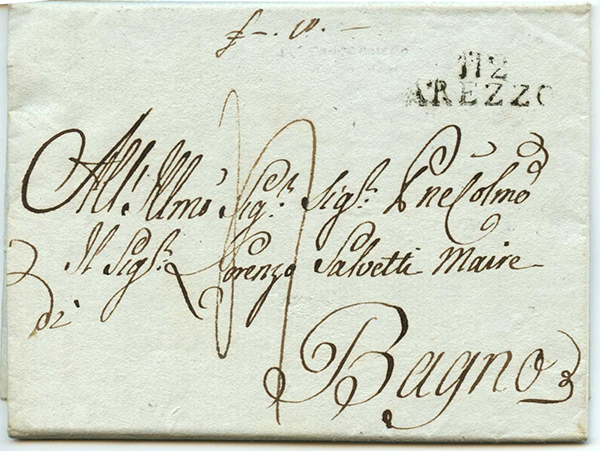 112
AREZZO
All' Illmo Sigr. Sigr. Pne Colmo
Il Sigr. Lorenzo Salvetti Maire
di
Bagno